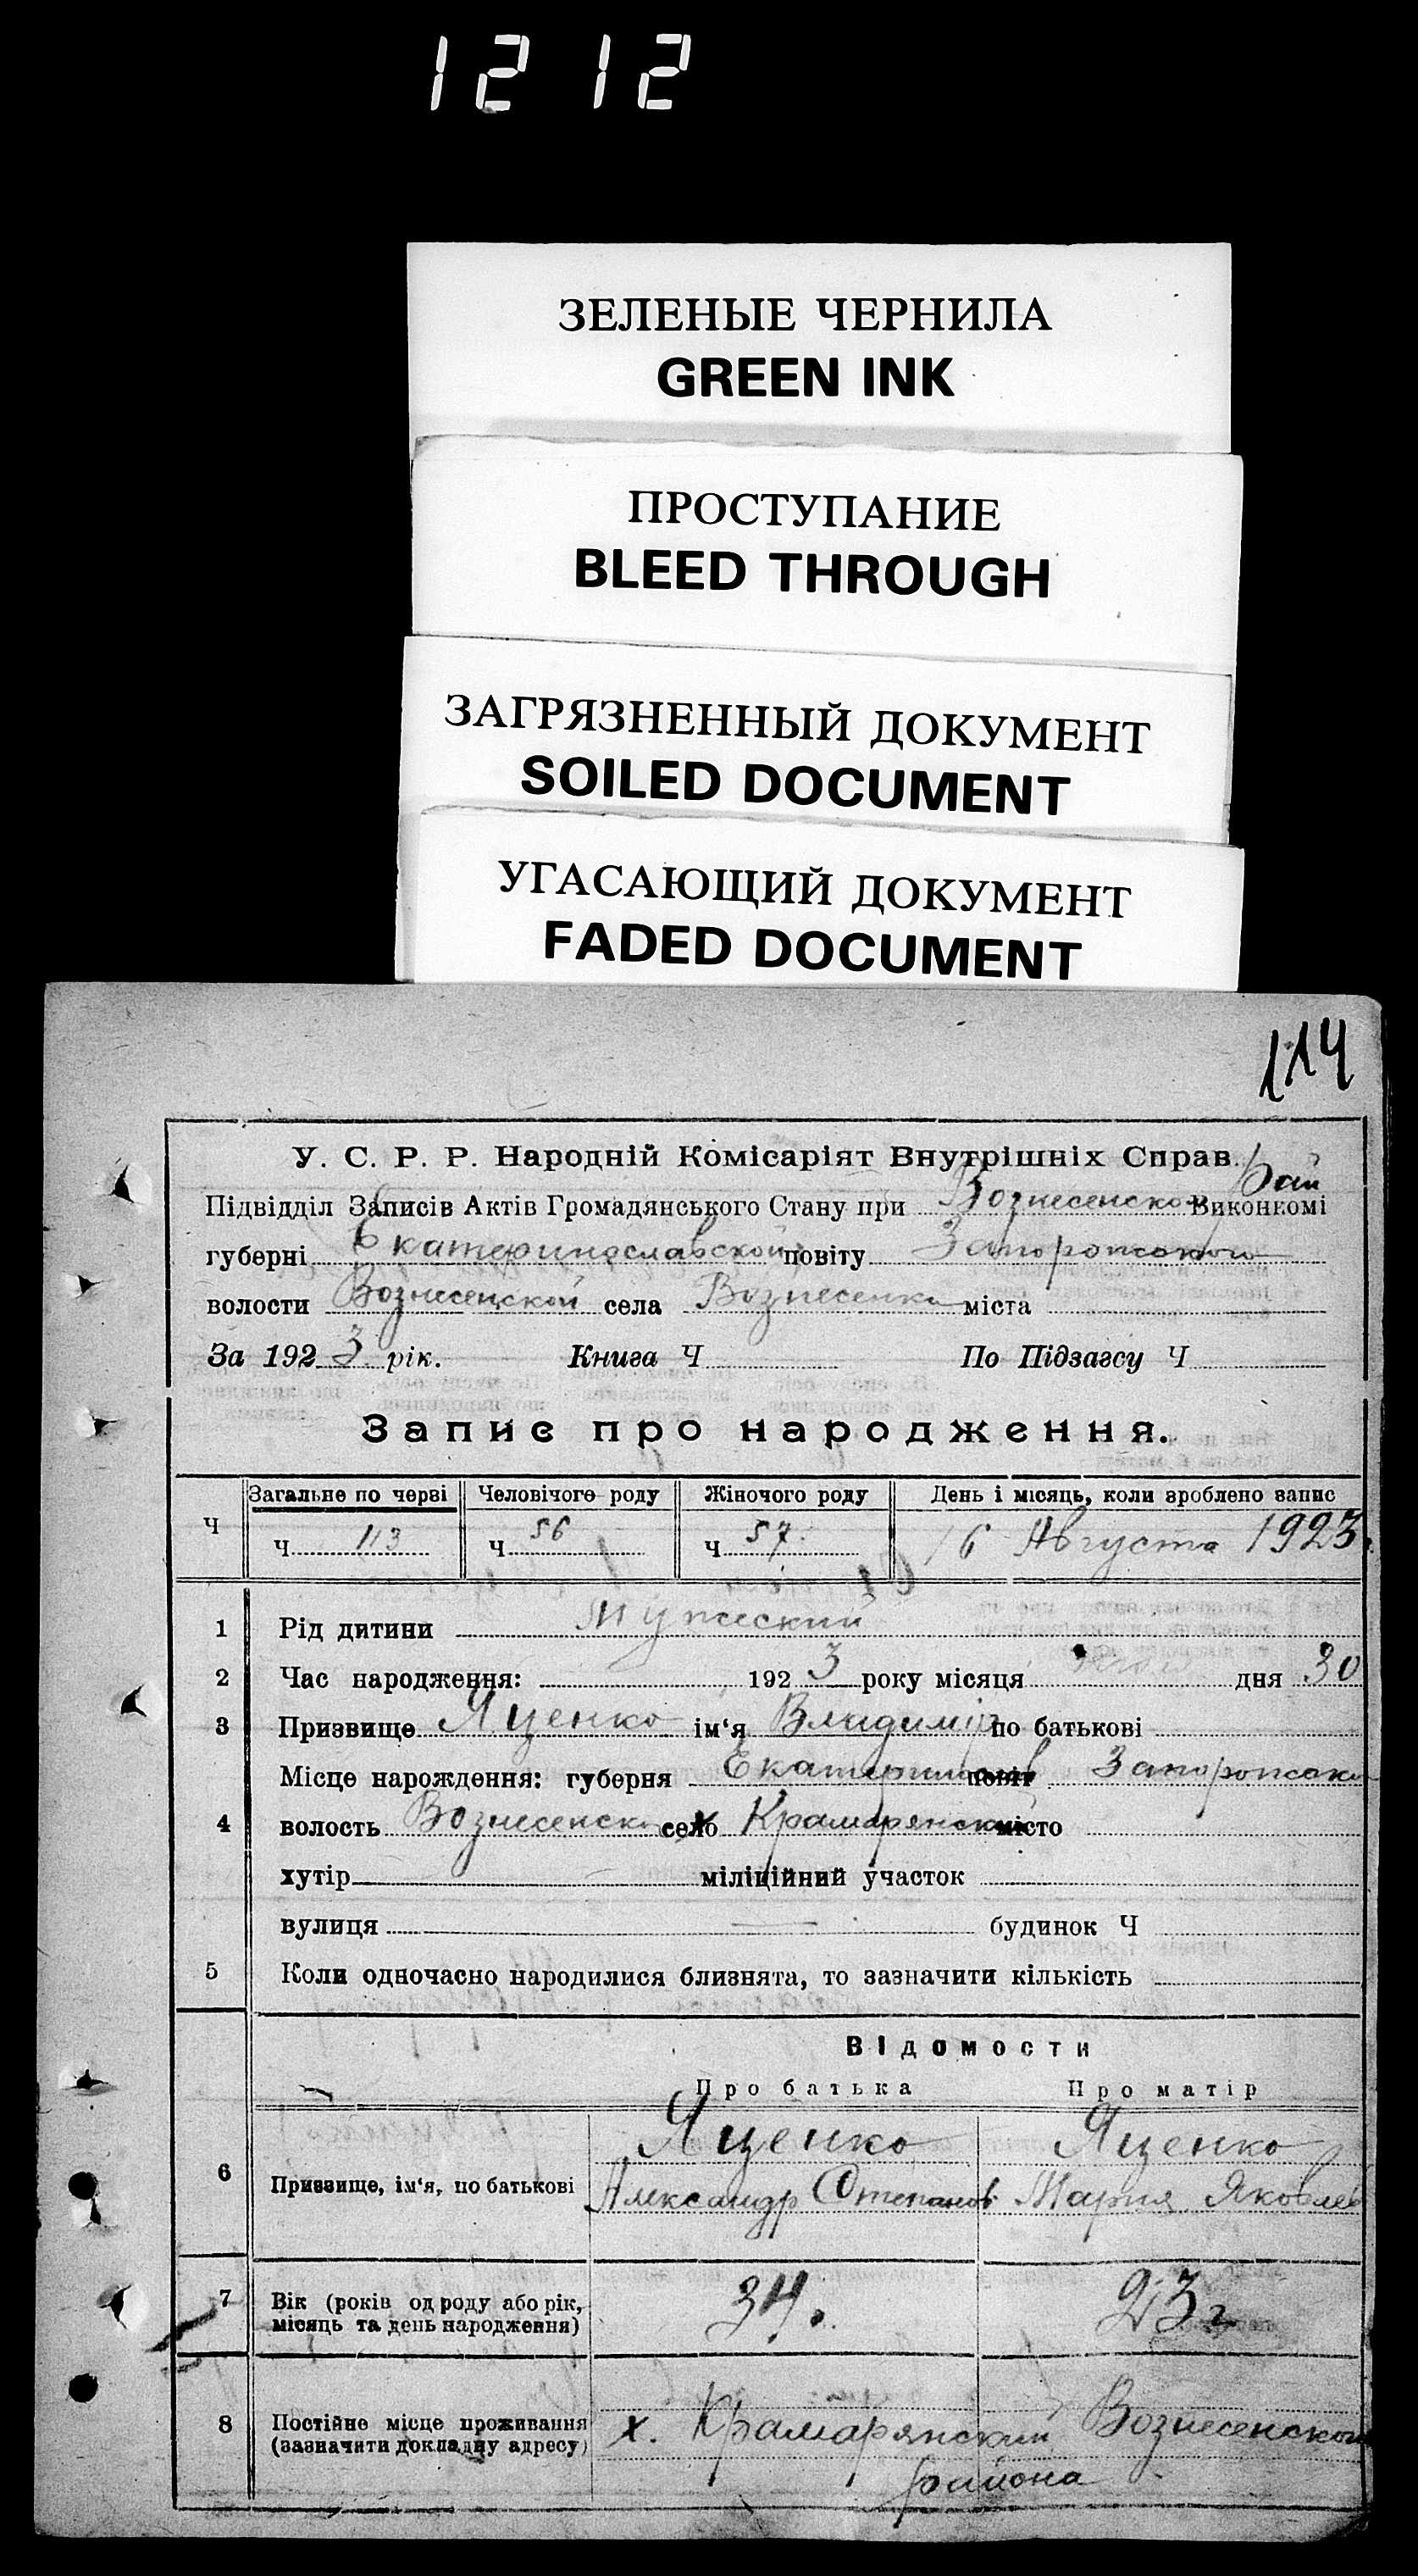 12 12
ЗЕЛЕНЫЕ ЧЕРНИЛА
GREEN INK
ПРОСТУПАНИЕ
BLEED THROUGH
ЗАГРЯЗНЕННЫЙ ДОКУМЕНТ
SOILED DOCUMENT
УГАСАЮЩИЙ ДОКУМЕНТ
FADED DOCUMENT
114
У. С. Р. Р. Народній Комісаріят Внутрішніх Справ.
Підвідділ Записів Актів Громадянського Стану при Вознесенском Рай Виконкомі
губерні Екатеринославской повіту Запорожского
волости Вознесенской села Вознесенка міста
За 1923 рік. Книга Ч По Підзагсу Ч
Запис про народження.
Загальне по черзі Человічого роду Жіночого роду День і місяць, коли зроблено запис
Ч Ч 113 Ч 56 Ч 57. 16 Августа 1923
1 Рід дитини Мужеский
2 Час народження: 1923 року місяця дня 30
3 Призвище Яценко ім‘я Владимір по батькові
Місце нарождення: губерня Екатеринослав повіт Запорожск
4 волость Вознесенск село х Крамарянский місто
хутір міліційний участок
вулиця будинок Ч
5 Коли одночасно народилися близнята, то зазначити кількість
Відомости
Про батька Про матір
Яценко Яценко
6 Призвище, ім‘я, по батькові Александр Степанов Мария Яковлев
7 Вік (років од роду або рік, місяць та день народження) 34. 23 г
8 Постійне місце проживання (зазначити докладну адресу) х. Крамарянский Вознесенского
района